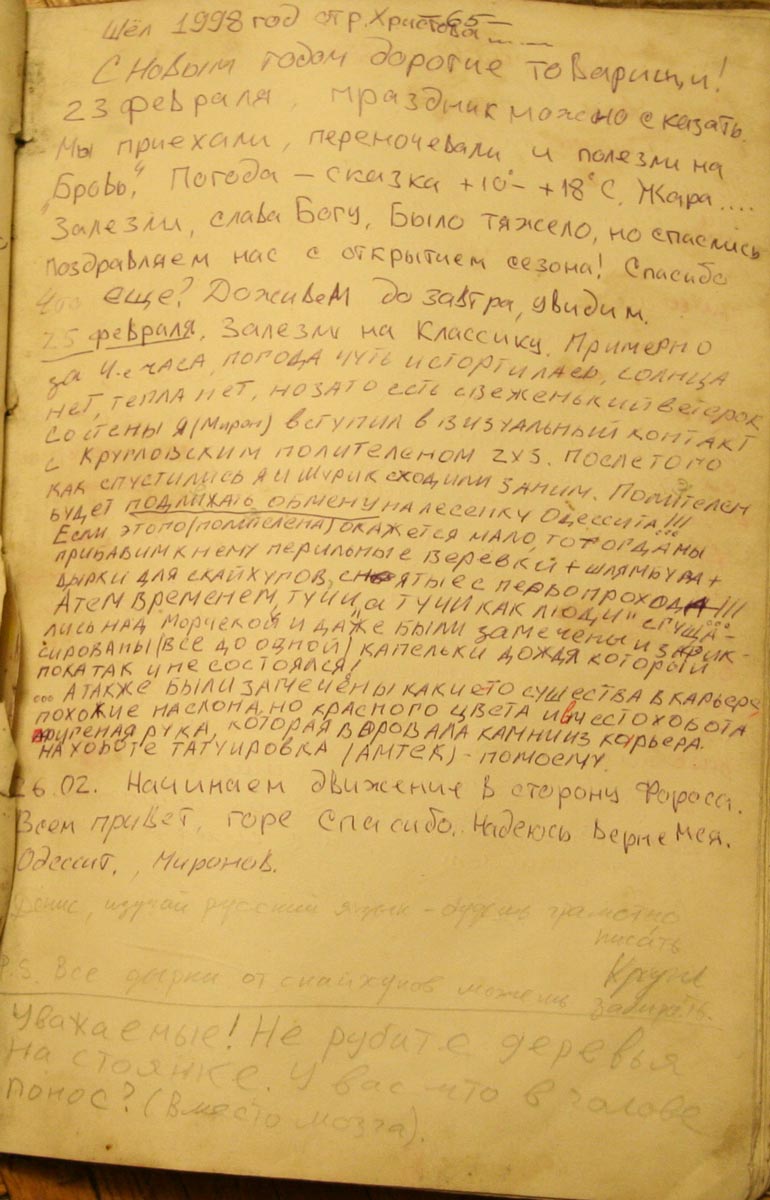 Шёл 1998 год от р. Христова.....
— 65 —
С Новым годом дорогие товарищи!
23 февраля, праздник можно сказать.
Мы приехали, переночевали и полезли на
"Бровь". Погода – сказка +10°- +18°С. Жара....
Залезли, слава Богу, Было тяжело, но спаслись
Поздравляем нас с открытием сезона! Спасибо
Что еще? Доживем до завтра, увидим.
25 февраля. Залезли на Классику. Примерно
за 4-е часа, погода чуть испортилась, солнца
нет, тепла нет, но зато есть свеженький ветерок
Со стены я (Мирон) вступил в визуальный контакт
с Кругловским полителеном 2х3. После того
как спустились я и Шурик сходили за ним. Полителен
будет подлижать обмену на лесенку Одессита!!!
Если этого (полителена) окажется мало, то тогда мы
прибавим к нему перильные веревки + шлямбура +
дырки для скайхупов, снятые с первопрохода!!!
А тем временем, "тучи, а тучи как люди" сгуща-
лись над Морчекой и даже были замечены и зафик-
сированы (все до одной) капельки дождя который
пока так и не состоялся!
... А также были замечены какие то существа в карьере,
похожие на слона, но красного цвета и вместо хобота
рука, которая воровала камни из карьера.
на хоботе татуировка (АМТЕК) - помоему.
26.02. Начинаем движение в сторону Фороса.
Всем привет, горе Спасибо. Надеюсь вернемся.
Одессит, Миронов.
Денис, изучай русский язык – будешь грамотно
писать
Круглов
P.S. Все дырки от скайхуков можешь забирать.
Уважаемые! Не рубите деревья
на стоянке. У вас что в голове
понос? (Вместо мозга).